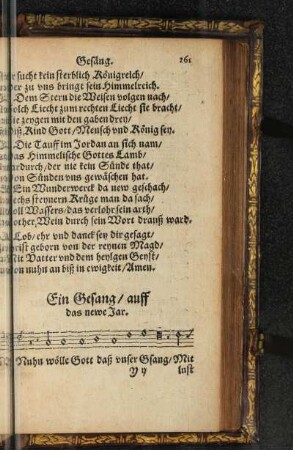 Gesäng. 161
sucht kein sterblich Königreich/
der zu vns bringt sein Himmelreich.
Dem Stern die Weisen volgen nach/
solch Liecht zum rechten Liecht sie bracht/
sie zeygen mit den gaben drey/
diß Kind Gott/ Mensch vnd König sey.
Die Tauff im Jordan an sich nam/
das Himmelische Gottes Lamb/
durch/ der nie kein Sünde that/
von Sünden vns gewäschen hat.
Ein Wunderwerck da new geschach/
sechs steynern Krüge man da sach/
voll Wassers/ das verlohr sein arth/
rother Wein durch sein Wort drauß ward.
Lob/ ehr vnd danck sey dir gesagt/
Christ geborn von der reynen Magd/
Mit Vatter vnd dem heylgen Geyst/
von nuhn an biß in ewigkeit/ Amen.
Ein Gesang/ auff
das newe Jar.
Nuhn wölle Gott daß vnser Gsang/ Mit
Y y lust